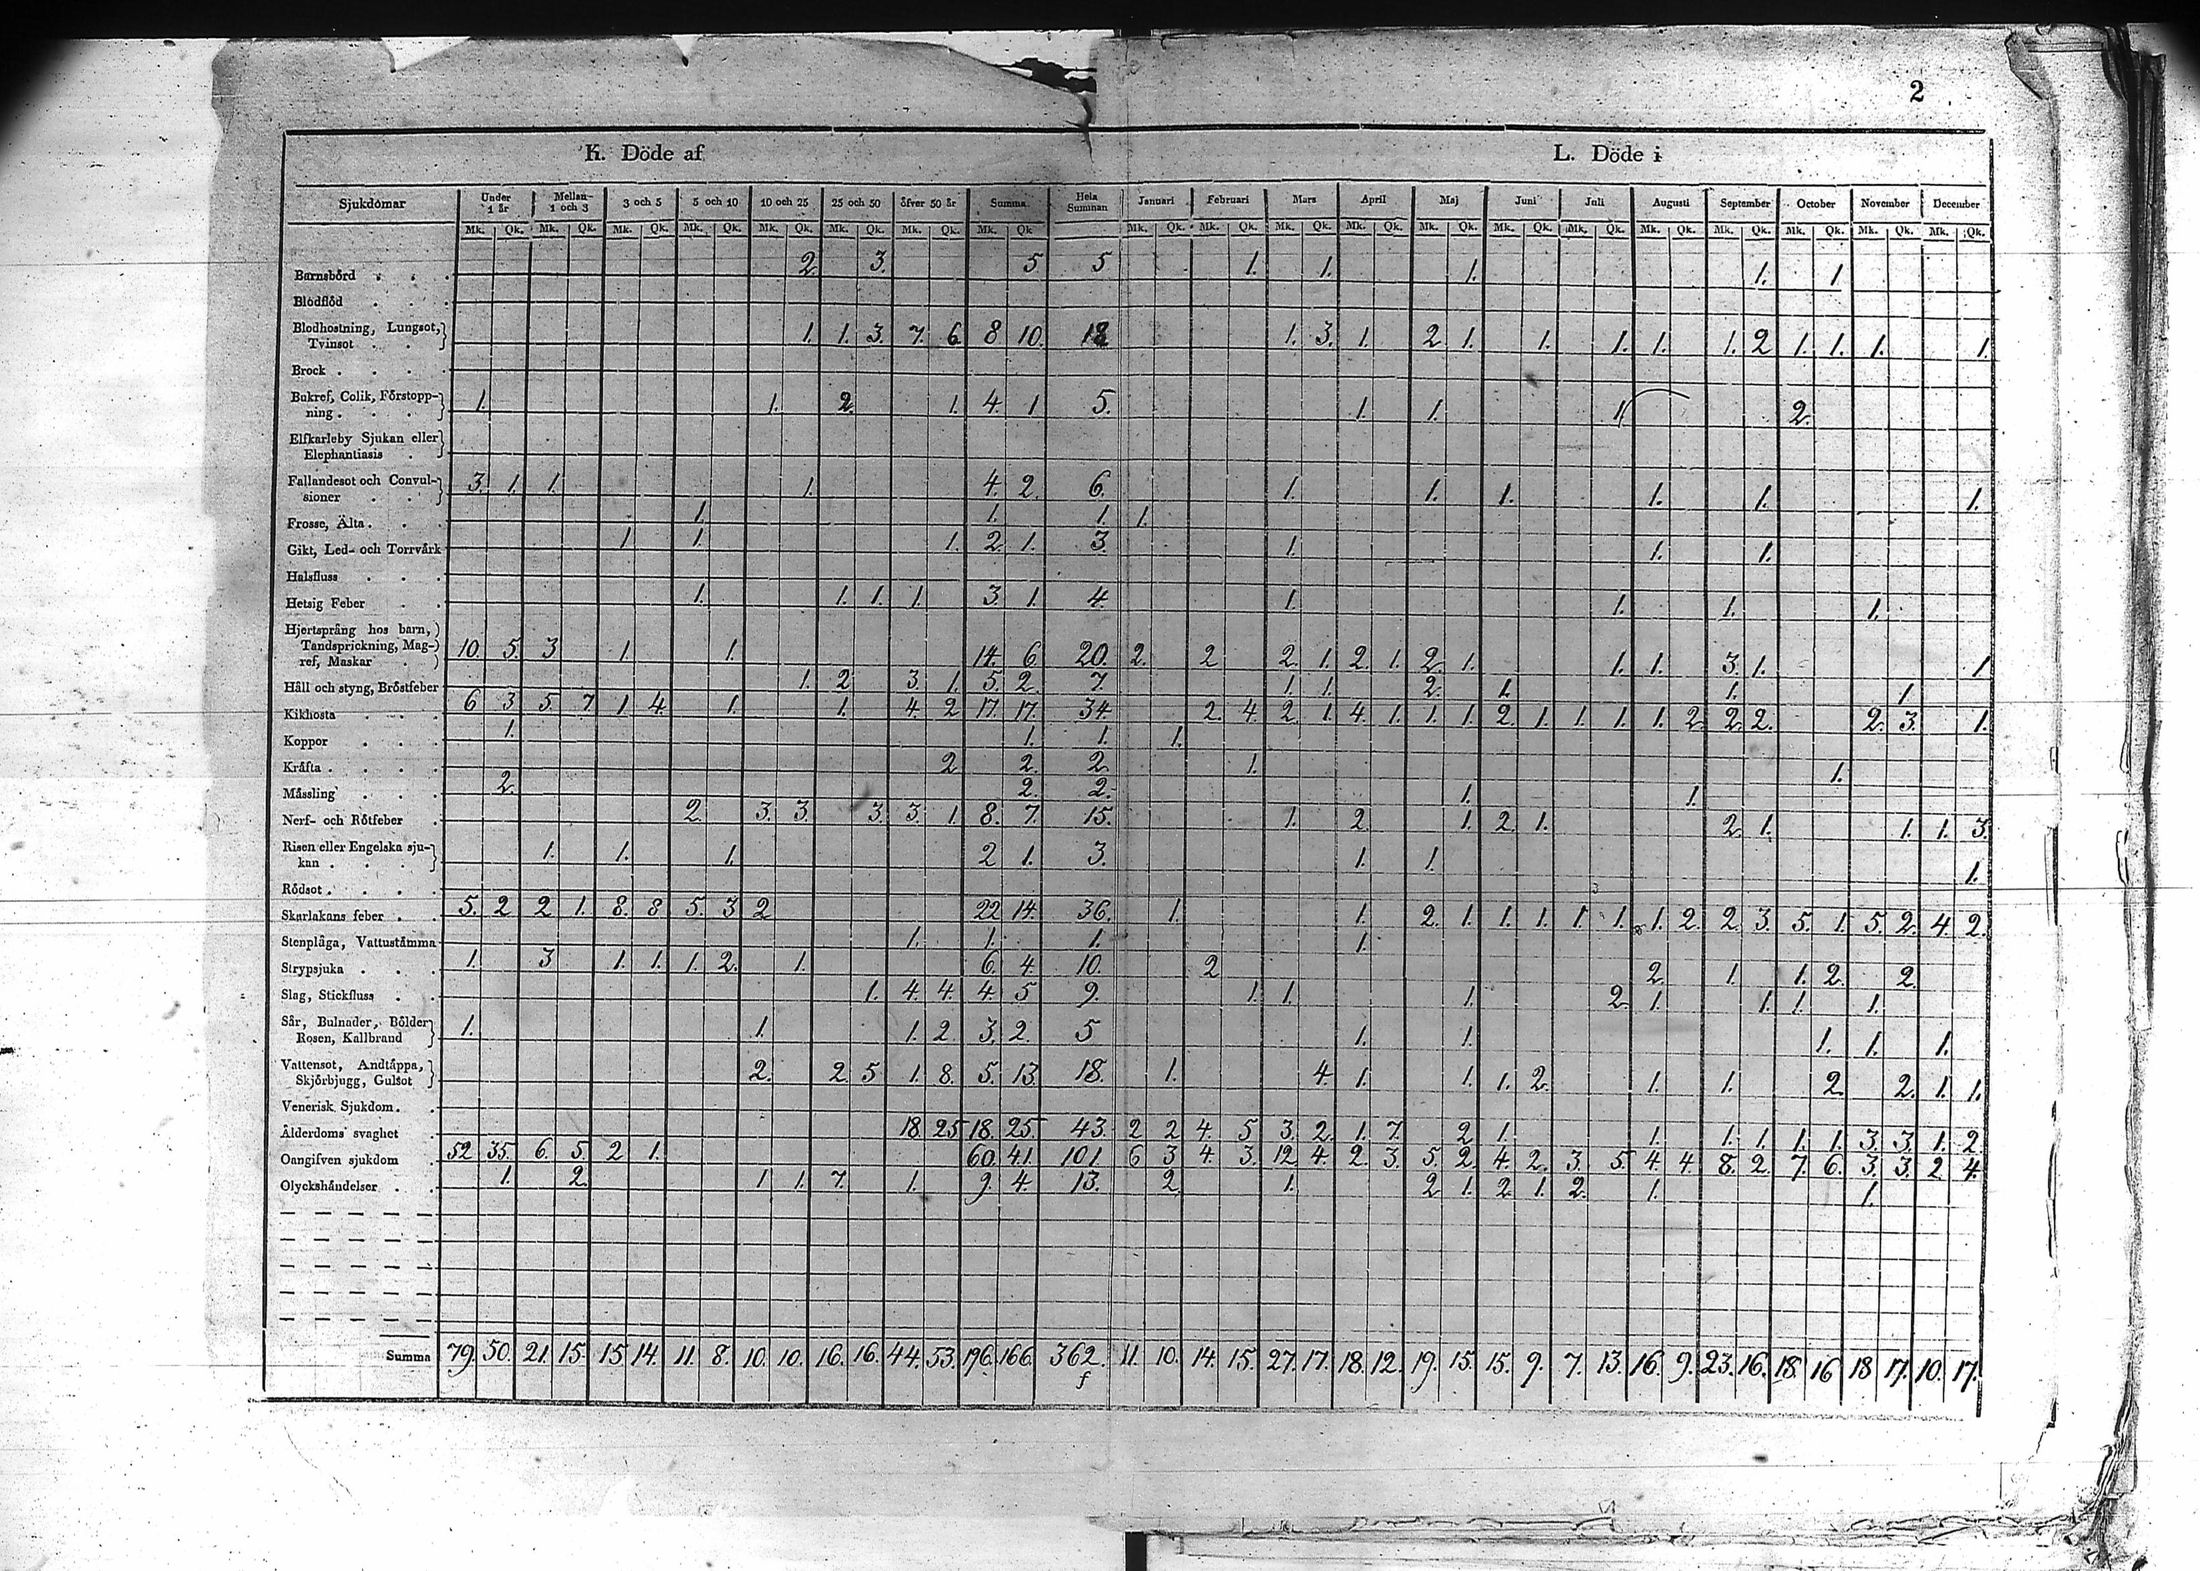 2
K. Döde af L. Döde i
Sjukdomar Under 1 år Mellan 1 och 3 3 och 5 5 och 10 10 och 25 25 och 50 öfver 50 år Summa Hela Summan Januari Februari Mars April Maj Juni Juli Augusti September October November December
Mk. Qk. Mk. Qk. Mk. Qk. Mk. Qk. Mk. Qk. Mk. Qk. Mk. Qk. Mk. Qk Mk. Qk. Mk. Qk. Mk. Qk. Mk. Qk. Mk. Qk. Mk. Qk. Mk. Qk. Mk. Qk. Mk. Qk. Mk. Qk. Mk. Qk. Mk. Qk.
Barnsbörd . . . 2. 3. 5 5 1. 1. 1. 1. 1.
Blodflöd . . .
Blodhostning, Lungsot, 1. 1. 3. 7. 6. 8 10. 18 1. 3. 1. 2. 1. 1. 1. 1. 1. 2 1. 1. 1. 1.
Tvinsot . . .
Brock . . . .
Bukref, Colik, Förstopp- 1. 1. 2. 1. 4. 1 5. 1. 1. 1. 2.
ning . . .
Elfkarleby Sjukan eller
Elephantiasis .
Fallandesot och Convul- 3. 1. 1. 1. 4. 2. 6. 1. 1. 1. 1. 1. 1.
sioner . . .
Frosse, Älta . . . 1. 1. 1. 1.
Gikt, Led- och Torrvärk 1 1. 1. 2. 1. 3. 1. 1. 1.
Halsfluss . . .
Hetsig Feber . . 1. 1. 1. 1. 3. 1. 4. 1. 1. 1. 1.
Hjertsprång hos barn,
Tandsprickning, Mag- 10. 5. 3 1. 1. 14. 6. 20. 2. 2 2. 1. 2. 1. 2. 1. 1. 1. 3. 1. 1
ref, Maskar .
Håll och styng, Bröstfeber 1. 2 3. 1. 5. 2. 7. 1. 1. 2. 1. 1. 1.
Kikhosta . . . 6 3 5. 7 1 4. 1. 1. 4. 2 17. 17. 34. 2. 4. 2. 1. 4. 1. 1. 1. 2. 1. 1. 1. 1. 2. 2. 2. 2. 3. 1.
Koppor . . . 1. 1. 1. 1.
Kräfta . . . . 2 2. 2. 1. 1.
Mässling . . . 2. 2. 2. 1. 1.
Nerf- och Rötfeber . 2. 3. 3. 3. 3. 1. 8. 7. 15. 1. 2. 1. 2. 1. 2. 1. 1. 1. 3.
Risen eller Engelska sju- 1. 1. 1. 2 1. 3. 1. 1. 1.
kan . . . .
Rödsot . . . .
Skarlakans feber . . 5. 2 2 1. 8. 8 5. 3 2 22 14. 36. 1. 1. 2. 1. 1. 1. 1. 1. 1. 2. 2. 3. 5. 1. 5. 2. 4. 2.
Stenplåga, Vattustämma 1. 1. 1. 1.
Strypsjuka . . . 1. 3 1. 1. 1. 2. 1. 6. 4. 10. 2 2. 1. 1. 2. 2.
Slag, Stickfluss . . 1. 4. 4. 4. 5 9. 1. 1. 1. 2. 1. 1. 1. 1.
Sår, Bulnader, Bölder 1. 1. 1. 2. 3. 2. 5 1. 1. 1. 1. 1.
Rosen, Kallbrand
Vattensot, Andtäppa, 2. 2. 5 1. 8. 5. 13. 18. 1. 4. 1. 1. 1. 2. 1. 1. 2. 2. 1. 1.
Skjörbjugg, Gulsot
Venerisk Sjukdom . .
Ålderdoms svaghet . 18. 25 18. 25. 43. 2 2 4. 5 3. 2. 1. 7. 2 1. 1. 1. 1. 1. 1. 3. 3. 1. 2.
Oangifven sjukdom . 52 35. 6. 5. 2 1. 60. 41. 101 6 3 4. 3. 12 4. 2. 3. 5. 2. 4. 2. 3. 5. 4. 4. 8. 2. 7. 6. 3. 3. 2 4.
Olyckshändelser . . 1. 2. 1 1. 7. 1. 9 4. 13. 2. 1. 2 1. 2. 1. 2. 1. 1.
Summa 79. 50. 21. 15. 15 14. 11. 8. 10. 10. 16. 16. 44. 53. 196. 166. 362. 11. 10. 14. 15. 27. 17. 18. 12. 19. 15. 15. 9. 7. 13. 16. 9. 23. 16. 18. 16 18 17. 10. 17.